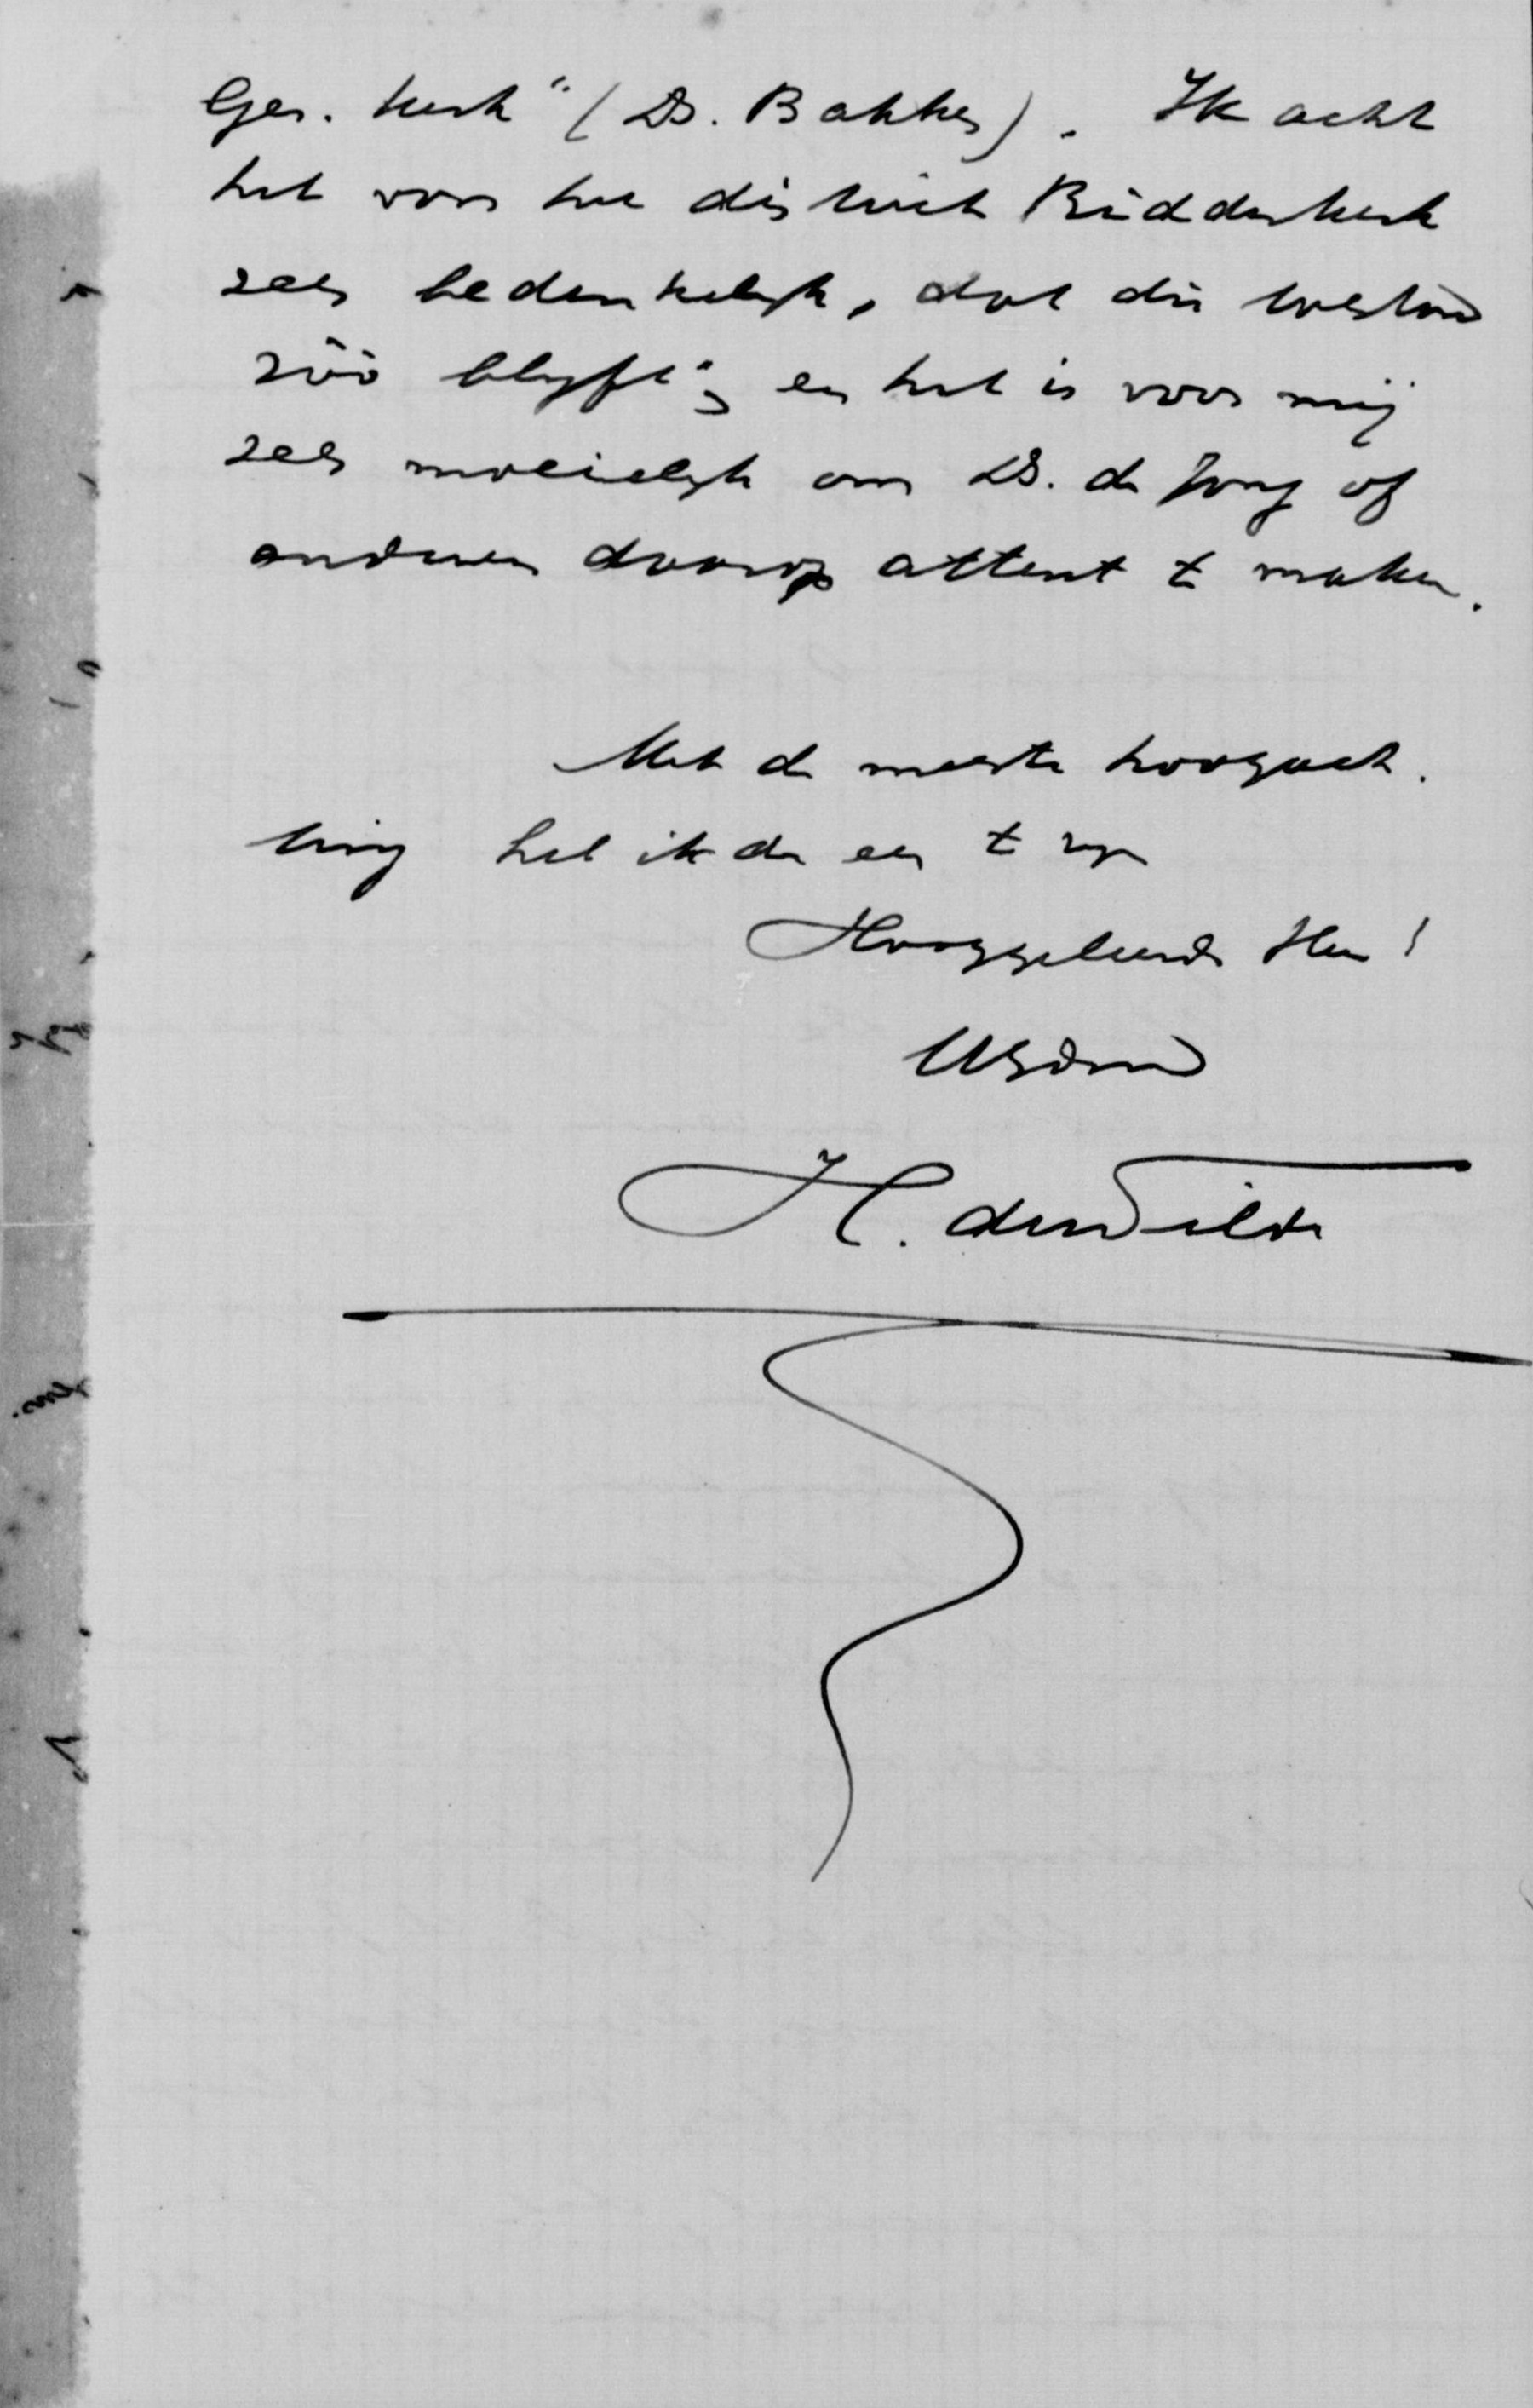 Ger. Kerk" (Ds. Bakker). Ik acht
het voor het district Ridderkerk
zeer bedenkelijk, dat die toestand
zóó blijft; en het is voor mij
zeer moeielijk om Ds. de Jong of
anderen daarop attent te maken.
Met de meeste hoogach-
ting heb ik de eer te zijn
Hooggeleerde Heer!
UEdw
H. de Wilde